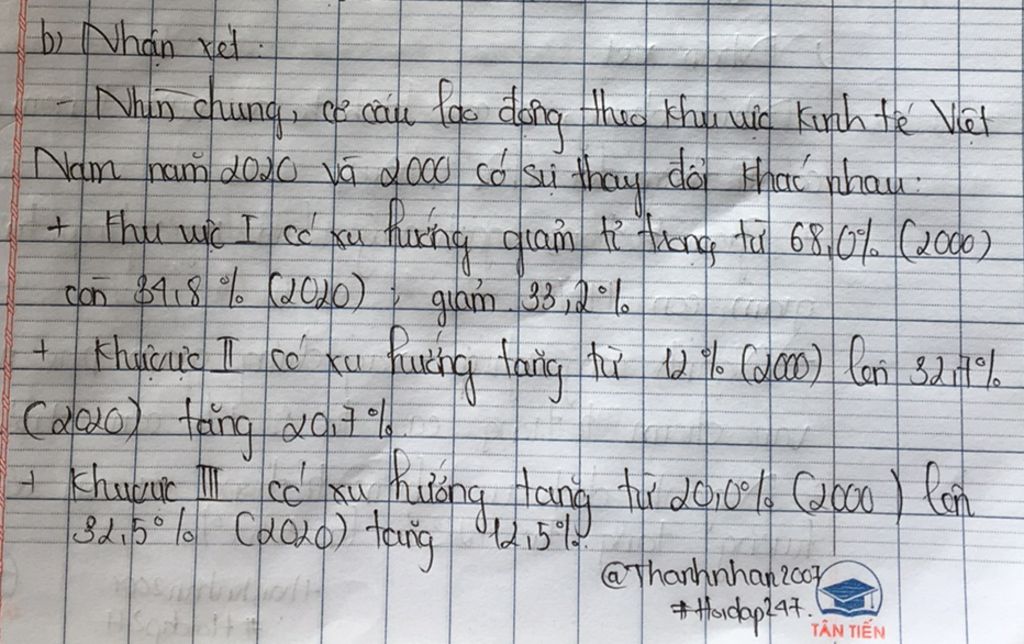 b) Nhận xét:
- Nhìn chung, cơ cấu lao động theo khu vực kinh tế Việt
Nam năm 2020 và 2000 có sự thay đổi khác nhau:
+ Khu vực I có xu hướng giảm tỉ trọng từ 68,0% (2000)
còn 34,8% (2020), giảm 33,2%
+ Khu vực II có xu hướng tăng từ 12% (2000) lên 32,7%
(2020) tăng 20,7%
+ Khu vực III có xu hướng tăng từ 20,0% (2000) lên
32,5% (2020) tăng 12,5%.
@Thanhnhan2007
#Hoidap247.
TÂN TIẾN